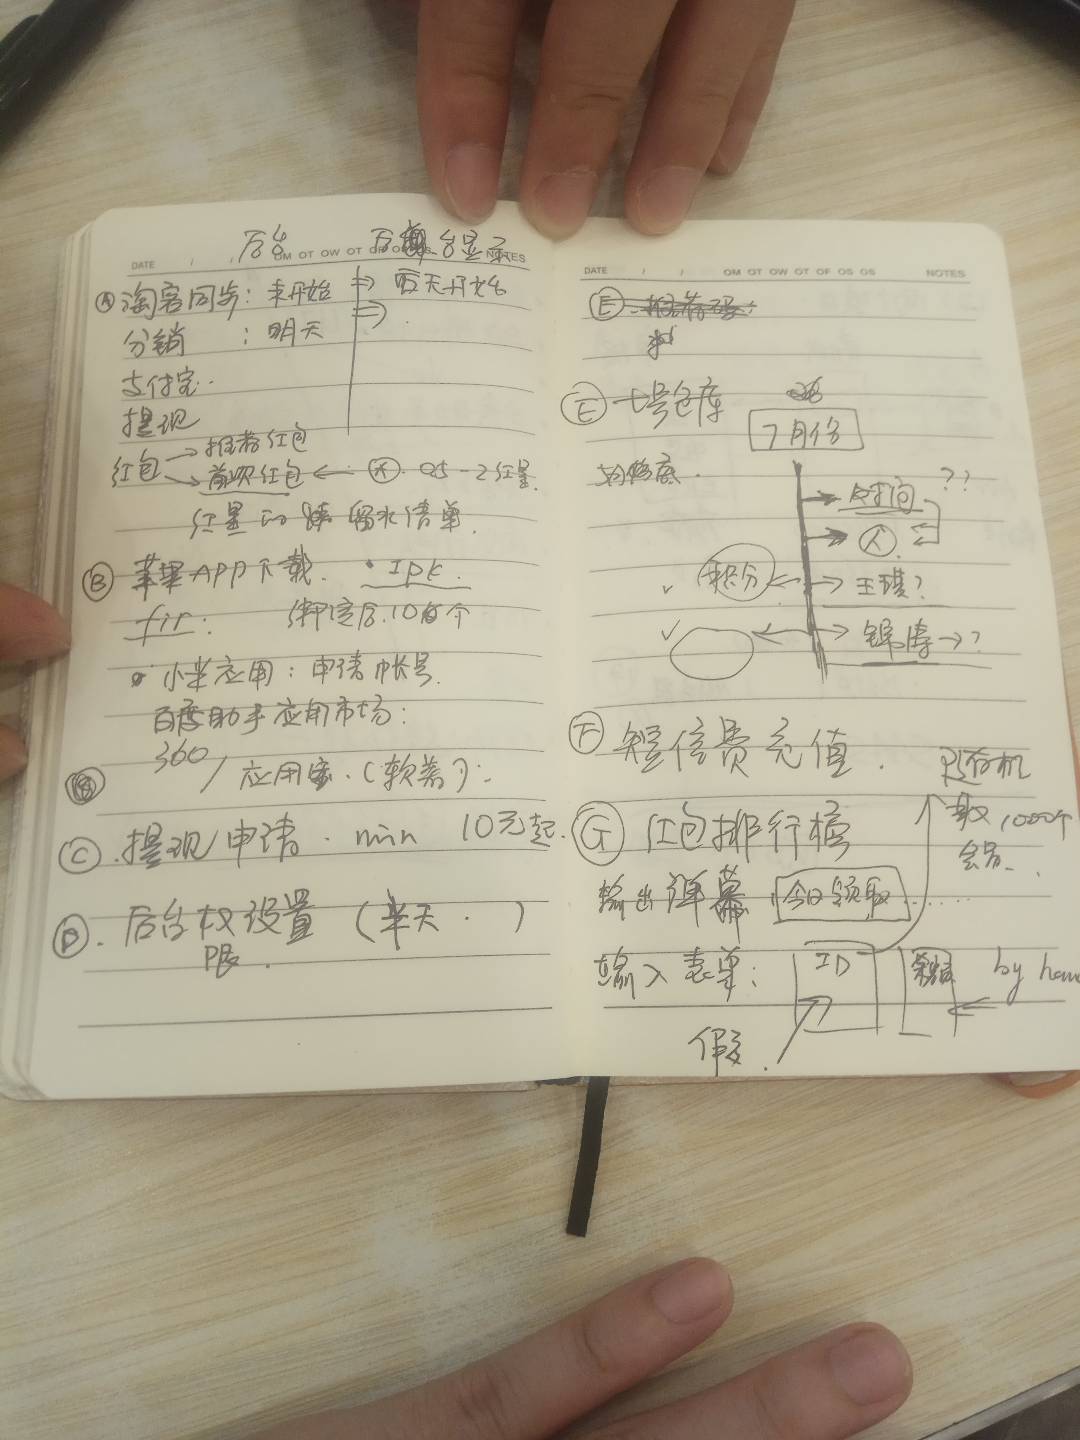 后台 后台显示
DATE / / OM OT OW OT OF OS OS NOTES
Ⓐ 淘客同步：未开始 ⇒ 后天开始
分销 ：明天 ⇒
支付宝
提现
红包 → 推荐红包
→ 首次红包 ← 0.5-2红星
红星 流水清单
Ⓑ 苹果APP下载. · IPK.
fir: 绑定后.10 个
· 小米应用：申请帐号.
百度助手应用市场：
360/应用宝.(软著)：
Ⓒ.提现申请. min 10元起.
Ⓓ. 后台权设置 (半天. )
限.
DATE / / OM OT OW OT OF OS OS NOTES
Ⓔ 推荐码：
Ⓔ 七号仓库
7月份
→ 时间 ??
→ 人
✓ 积分 ← → 王琪？
✓ ← → 锦涛 → ?
Ⓕ 短信费充值.
随机
取1000个
会员.
Ⓖ 红包排行榜
输出弹幕 今日领取......
输入表单： ID by han
假.